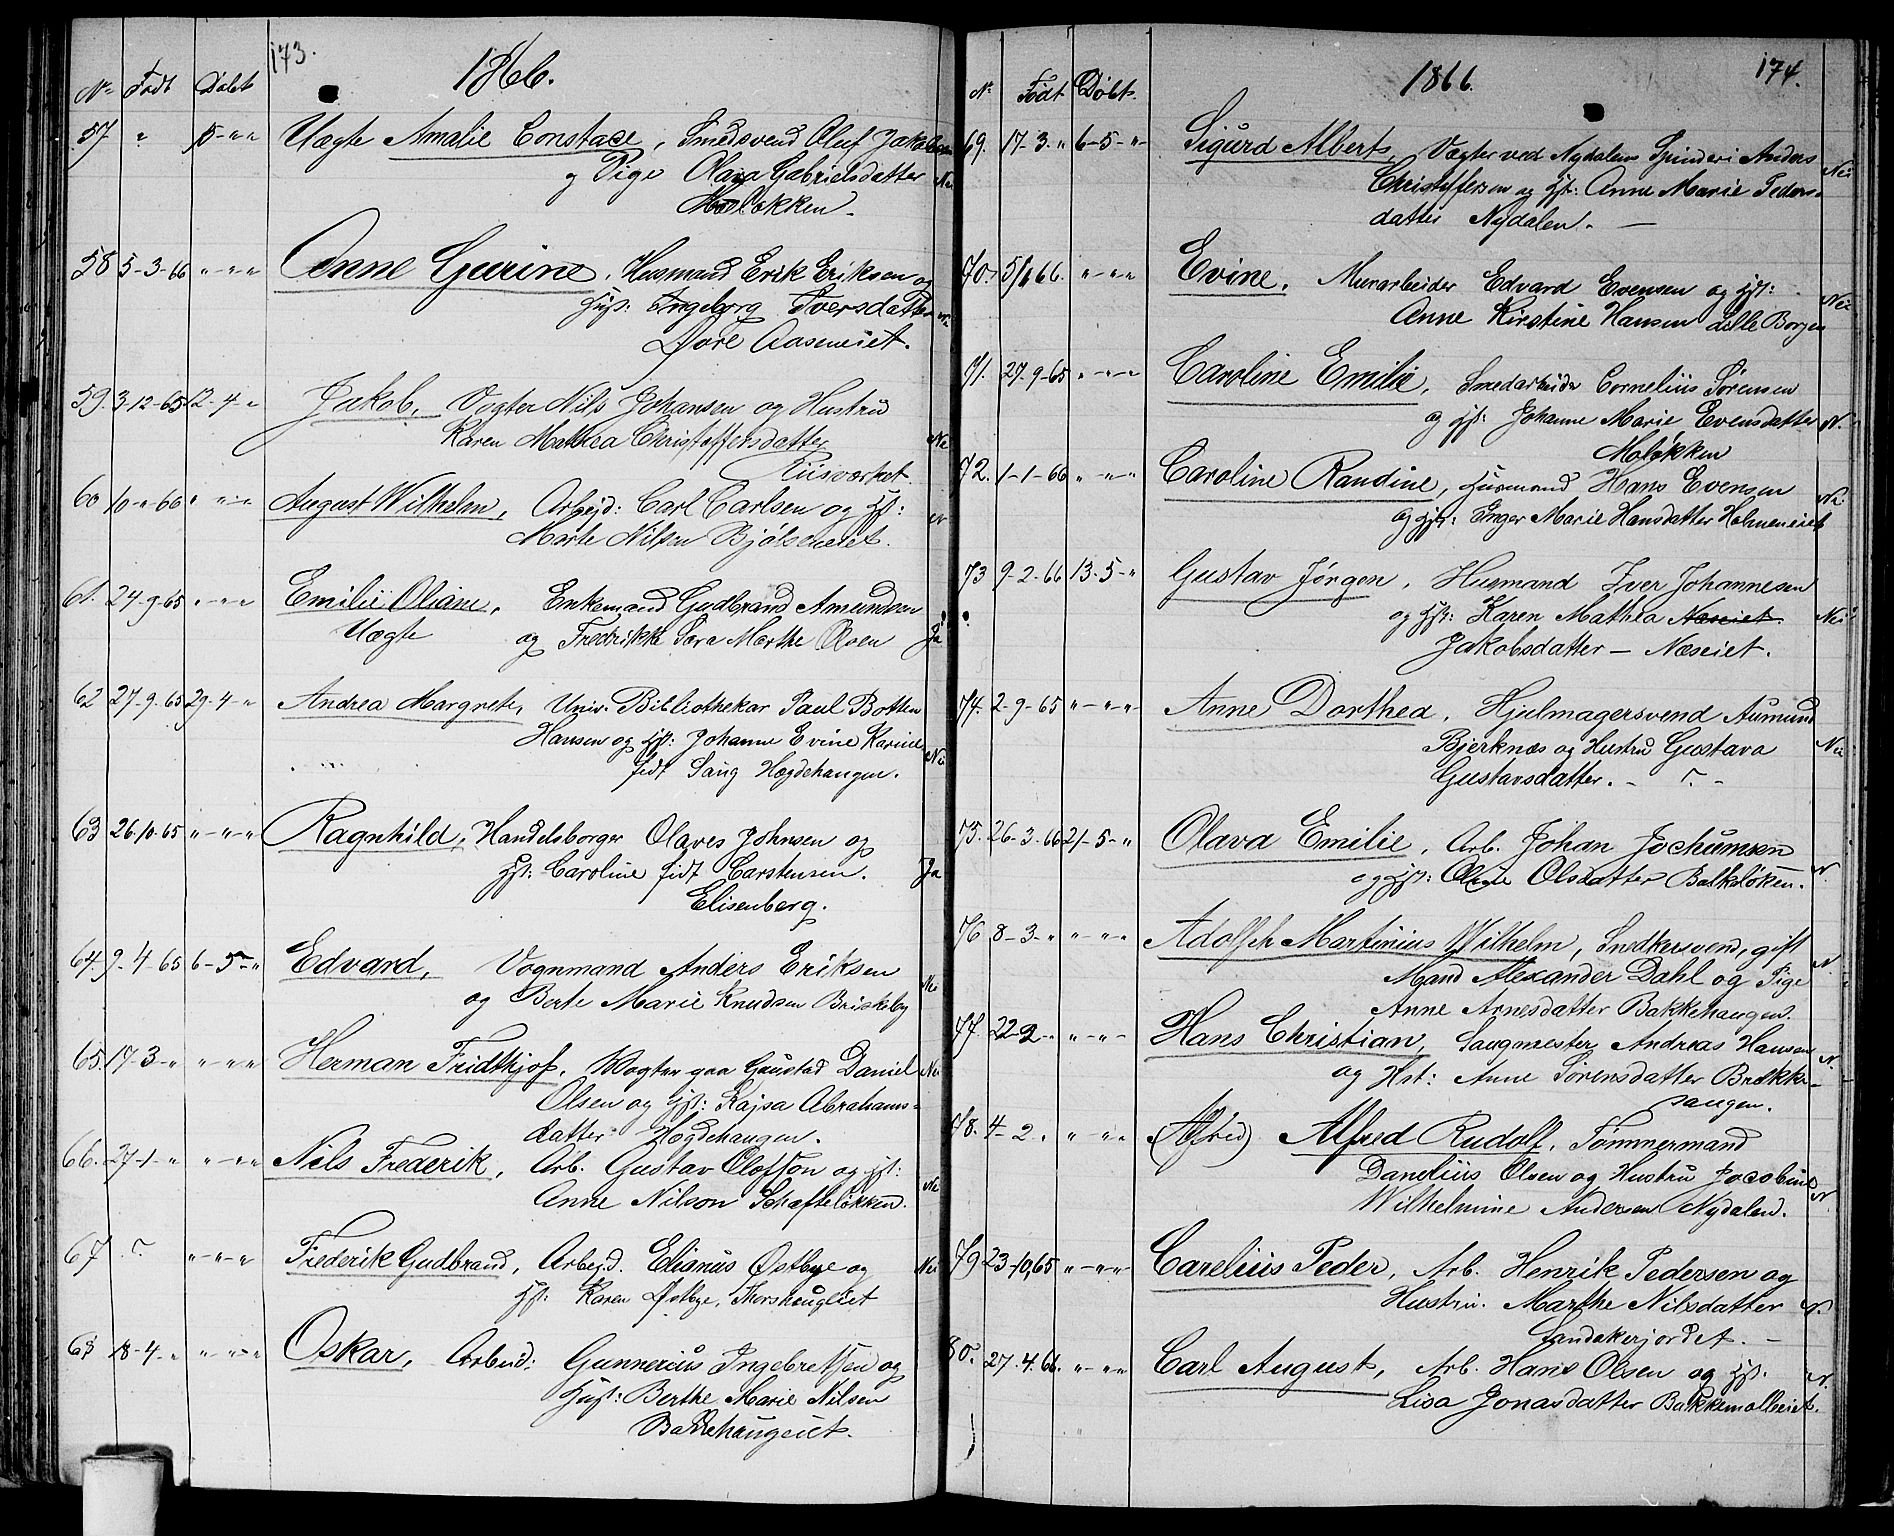 173.
1866.
No Født Døbt
57 " 15-"" Uægte Amalie Constace, Smedsvend Oluf Jakobsen
og Pige Olava Gabrielsdatter Nei
Moeløkken.
58 5-3-66 "-"-" Anne Gurine, Husmand Erik Eriksen og
Hust: Ingeborg Iversdatter
Øvre Aaseneiet.
59. 3-12-65 2-4-" Jakob, Vogter Nils Johansen og Hustru
Karen Mathea Christoffersdatter Nei
Riisværket.
60 10-"-66 "-"-" August Wilhelm, Arbejd: Carl Carlsen og Hst:
Marte Nilsen Bjølseneiet.
61. 24-9-65 "-"-" Emilie Oliane, Enkemand Gudbrand Amundsen
Uægte og Fredrikke Sara Marthe Olsen Ja
62 27-9-65 29-4-" Andrea Margrete, Univ. Bibliothekar Paul Botten
Hansen og Hst: Johanne Evine Karine Nei
født Haug Hægdehaugen.
63 26-10-65 "-"-" Ragnhild, Handelsborger Olaves Johnsen og
Hst: Caroline født Carstensen. Ja
Elisenberg.
64. 9-4-65 6-5-" Edvard, Vognmand Anders Eriksen
og Berte Marie Knudsen Briskeby Nei
65. 17-3-" "-"-" Herman Fridthjof, Vogter paa Gaustad Daniel Nei
Olsen og Hst: Kajsa Abrahams-
datter Hægdehaugen.
66. 27-1-" "-"-" Nils Frederik, Arb. Gustav Olofson og Hst:
Anne Nilson Schafteløkken. Nei
67 ? "-"-" Frederik Gudbrand, Arbejd. Elianus Østbye og Nei
Hst: Karen Østbye, Thorshaugeiet
68 18-4-" "-"-" Oskar, Arbeid: Gunnerius Ingebretsen og
Hust: Berthe Marie Nilsen
Bakkehaugeiet.
174.
1866.
No Født Døbt.
69. 17-3-" 6-5-"- Sigurd Albert, Vægter ved Nydalens Spinderi Anders Nei
Christoffersen og Hst: Anne Marie Peders-
datter Nydalen. —
70. 5/1 66. "-"-" Evine, Murarbeider Edvard Evensen og Hst: Nei
Anne Kirstine Hansen Lille Borgen
71. 27-9-65 "-"-" Caroline Emilie, Smedarbeide Cornelius Sørensen
og Hst: Johanne Marie Evensdatter N.
Moløkken
72. 1-1-66 "-"-" Caroline Randine, Husmand Hans Evensen Nei
og Hst: Inger Marie Hansdatter Holmeneiet
73 9-2-66 13-5-" Gustav Jørgen, Husmand Iver Johannesen
og Hst: Karen Mathea Næseiet Nei
Jakobsdatter — Næseiet.
74. 2-9-65 "-"-" Anne Dorthea, Hjulmagersvend Aumund
Bjerknæs og Hustru Gustava Nei
Gustavsdatter. - ? -
75. 26-3-66 21-5-" Olava Emilie, Arb. Johan Jochumsen
og Hst: Olsdatter Balkeløken. N.
76 8-3-" "-"-" Adolph Martinius Wilhelm, Snedkersvend, gift
Mand Alexander Dahl og Pige N
Anne Arnesdatter Bakkehaugen.
77. 22-2-" "-"- Hans Christian, Saugmester Andreas Hansen N.
og Hst: Anne Sørensdatter Brekke-
saugen.
78. 4-2-" "-"" (Alfred) Alfred Rudolf, Tømmermand
Danelius Olsen og Hustru Jacobine N.
Wilhelmine Andersen Nydalen.
79 23-10,65 "-"-" Carelius Peder, Arb. Henrik Pedersen og
Hustru. Marthe Nilsdatter N.
Sandakerjordet. —
80. 27.4.66. "-"" Carl August, Arb. Hans Olsen og Hst. N.
Lisa Jonasdatter Bakkemølleeiet.